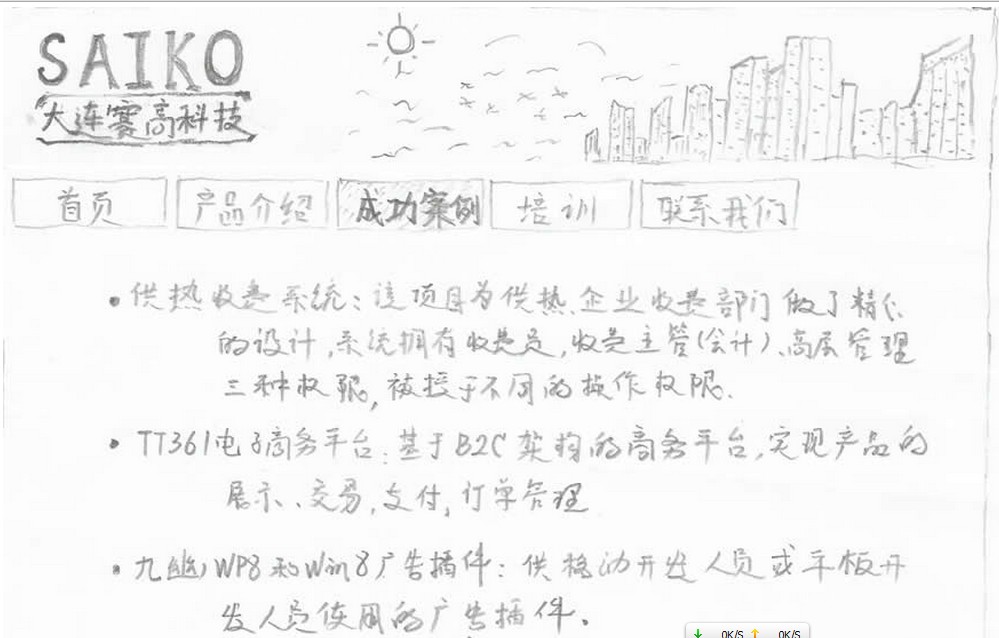 SAIKO
大连赛高科技
首页 产品介绍 成功案例 培训 联系我们
供热收费系统：该项目为供热企业收费部门做了精心
的设计,系统拥有收费员,收费主管(会计)、高层管理
三种权限,被授于不同的操作权限.
TT361电子商务平台:基于B2C架构的商务平台,实现产品的
展示、交易,支付,订单管理
九幽WP8和Win8广告插件：供移动开发人员或平板开
发人员使用的广告插件.
0K/S 0K/S